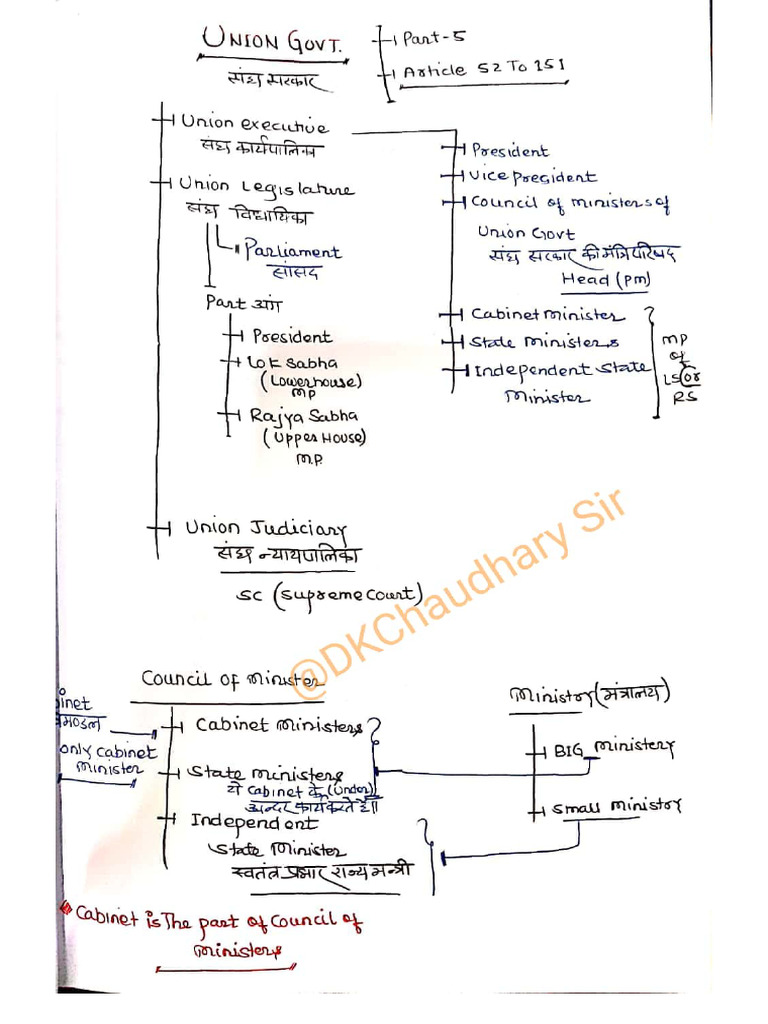 UNION GOVT.
संघ सरकार
Part-5
Article 52 To 151
Union executive
संघ कार्यपालिका
President
Vice president
Council of ministers of
Union Govt
संघ सरकार की मंत्रिपरिषद
Head (pm)
Cabinet minister
State Ministers
Independent State
Minister
MP
of
LS or
RS
Union Legislature
संघ विधायिका
Parliament
सांसद
Part अंग
President
Lok Sabha
(Lowerhouse)
MP
Rajya Sabha
(Upper House)
M.P.
Union Judiciary
संघ न्यायपालिका
SC (Supreme Court)
@DKChaudhary Sir
Council of Minister
inet
मण्डल
only cabinet
minister
Cabinet Ministers
State ministers
ये Cabinet के (Under)
अन्दर कार्य करते है॥
Independent
State Minister
स्वतंत्र प्रभार राज्य मन्त्री
Ministry (मंत्रालय)
BIG Ministery
Small ministry
Cabinet is The part of Council of
Ministers